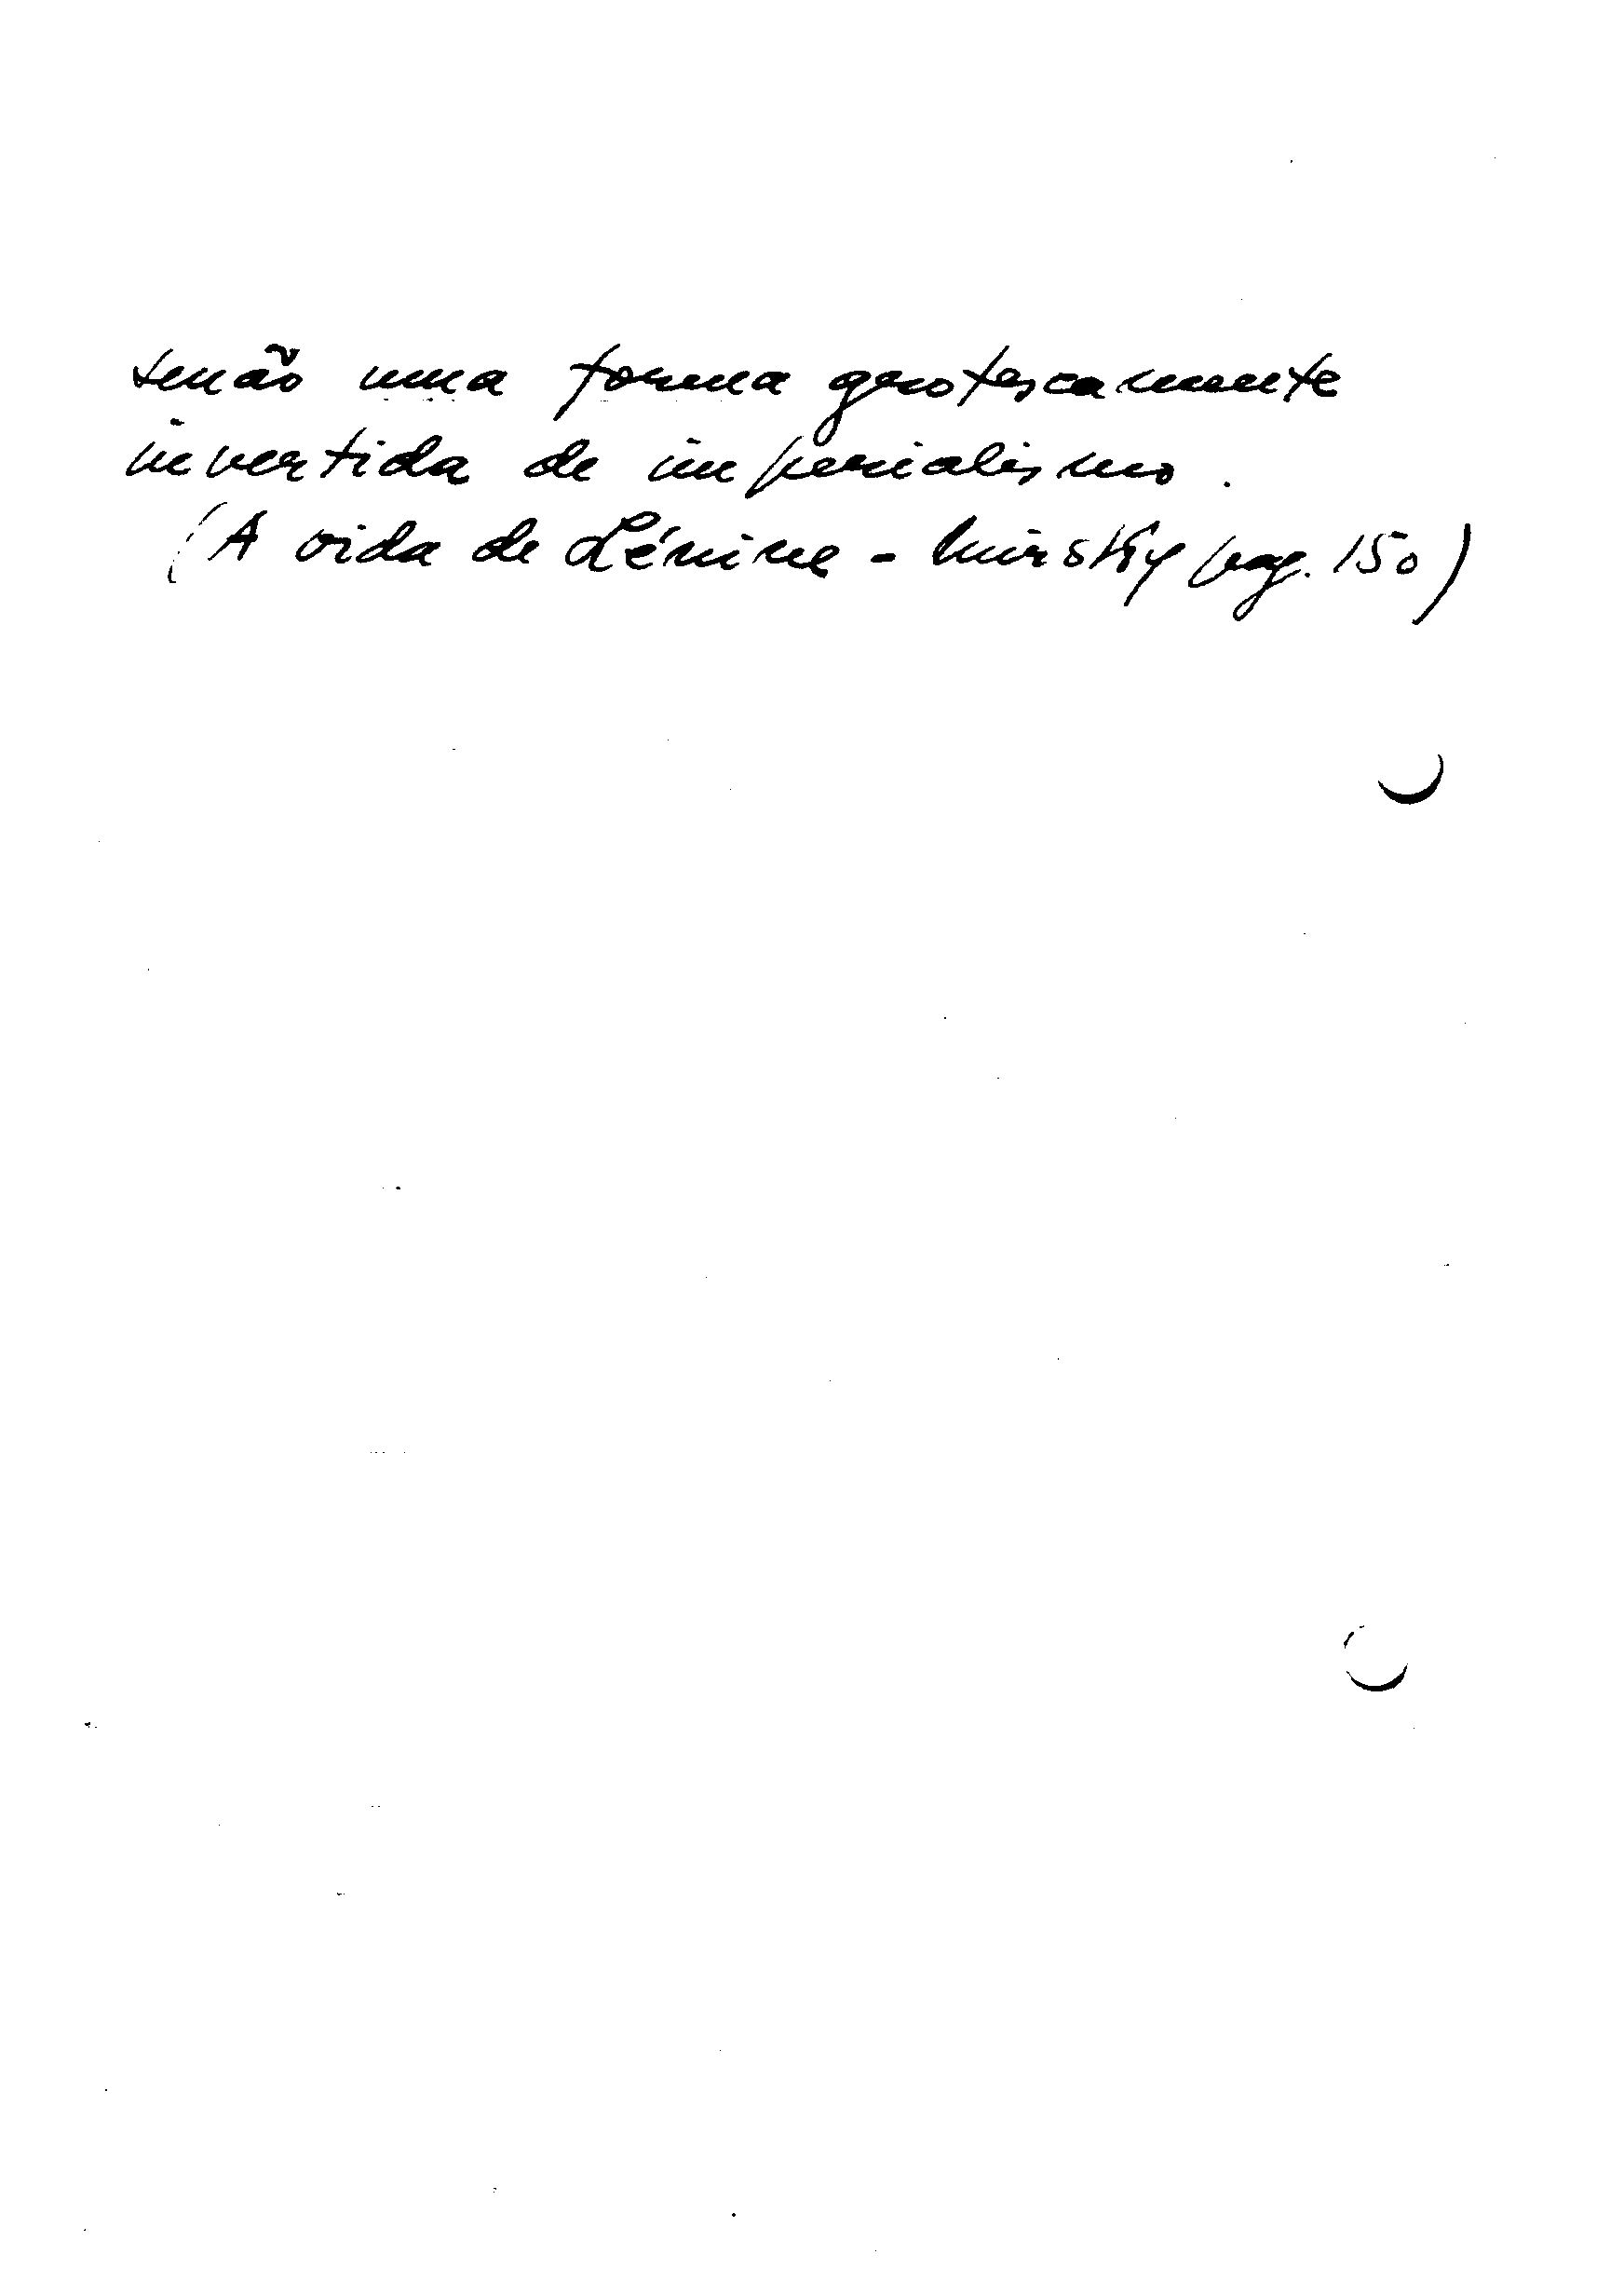 senão uma forma grotescamente
invertida de imperialismo.
(A vida de Lénine - Mirsky pag. 150)